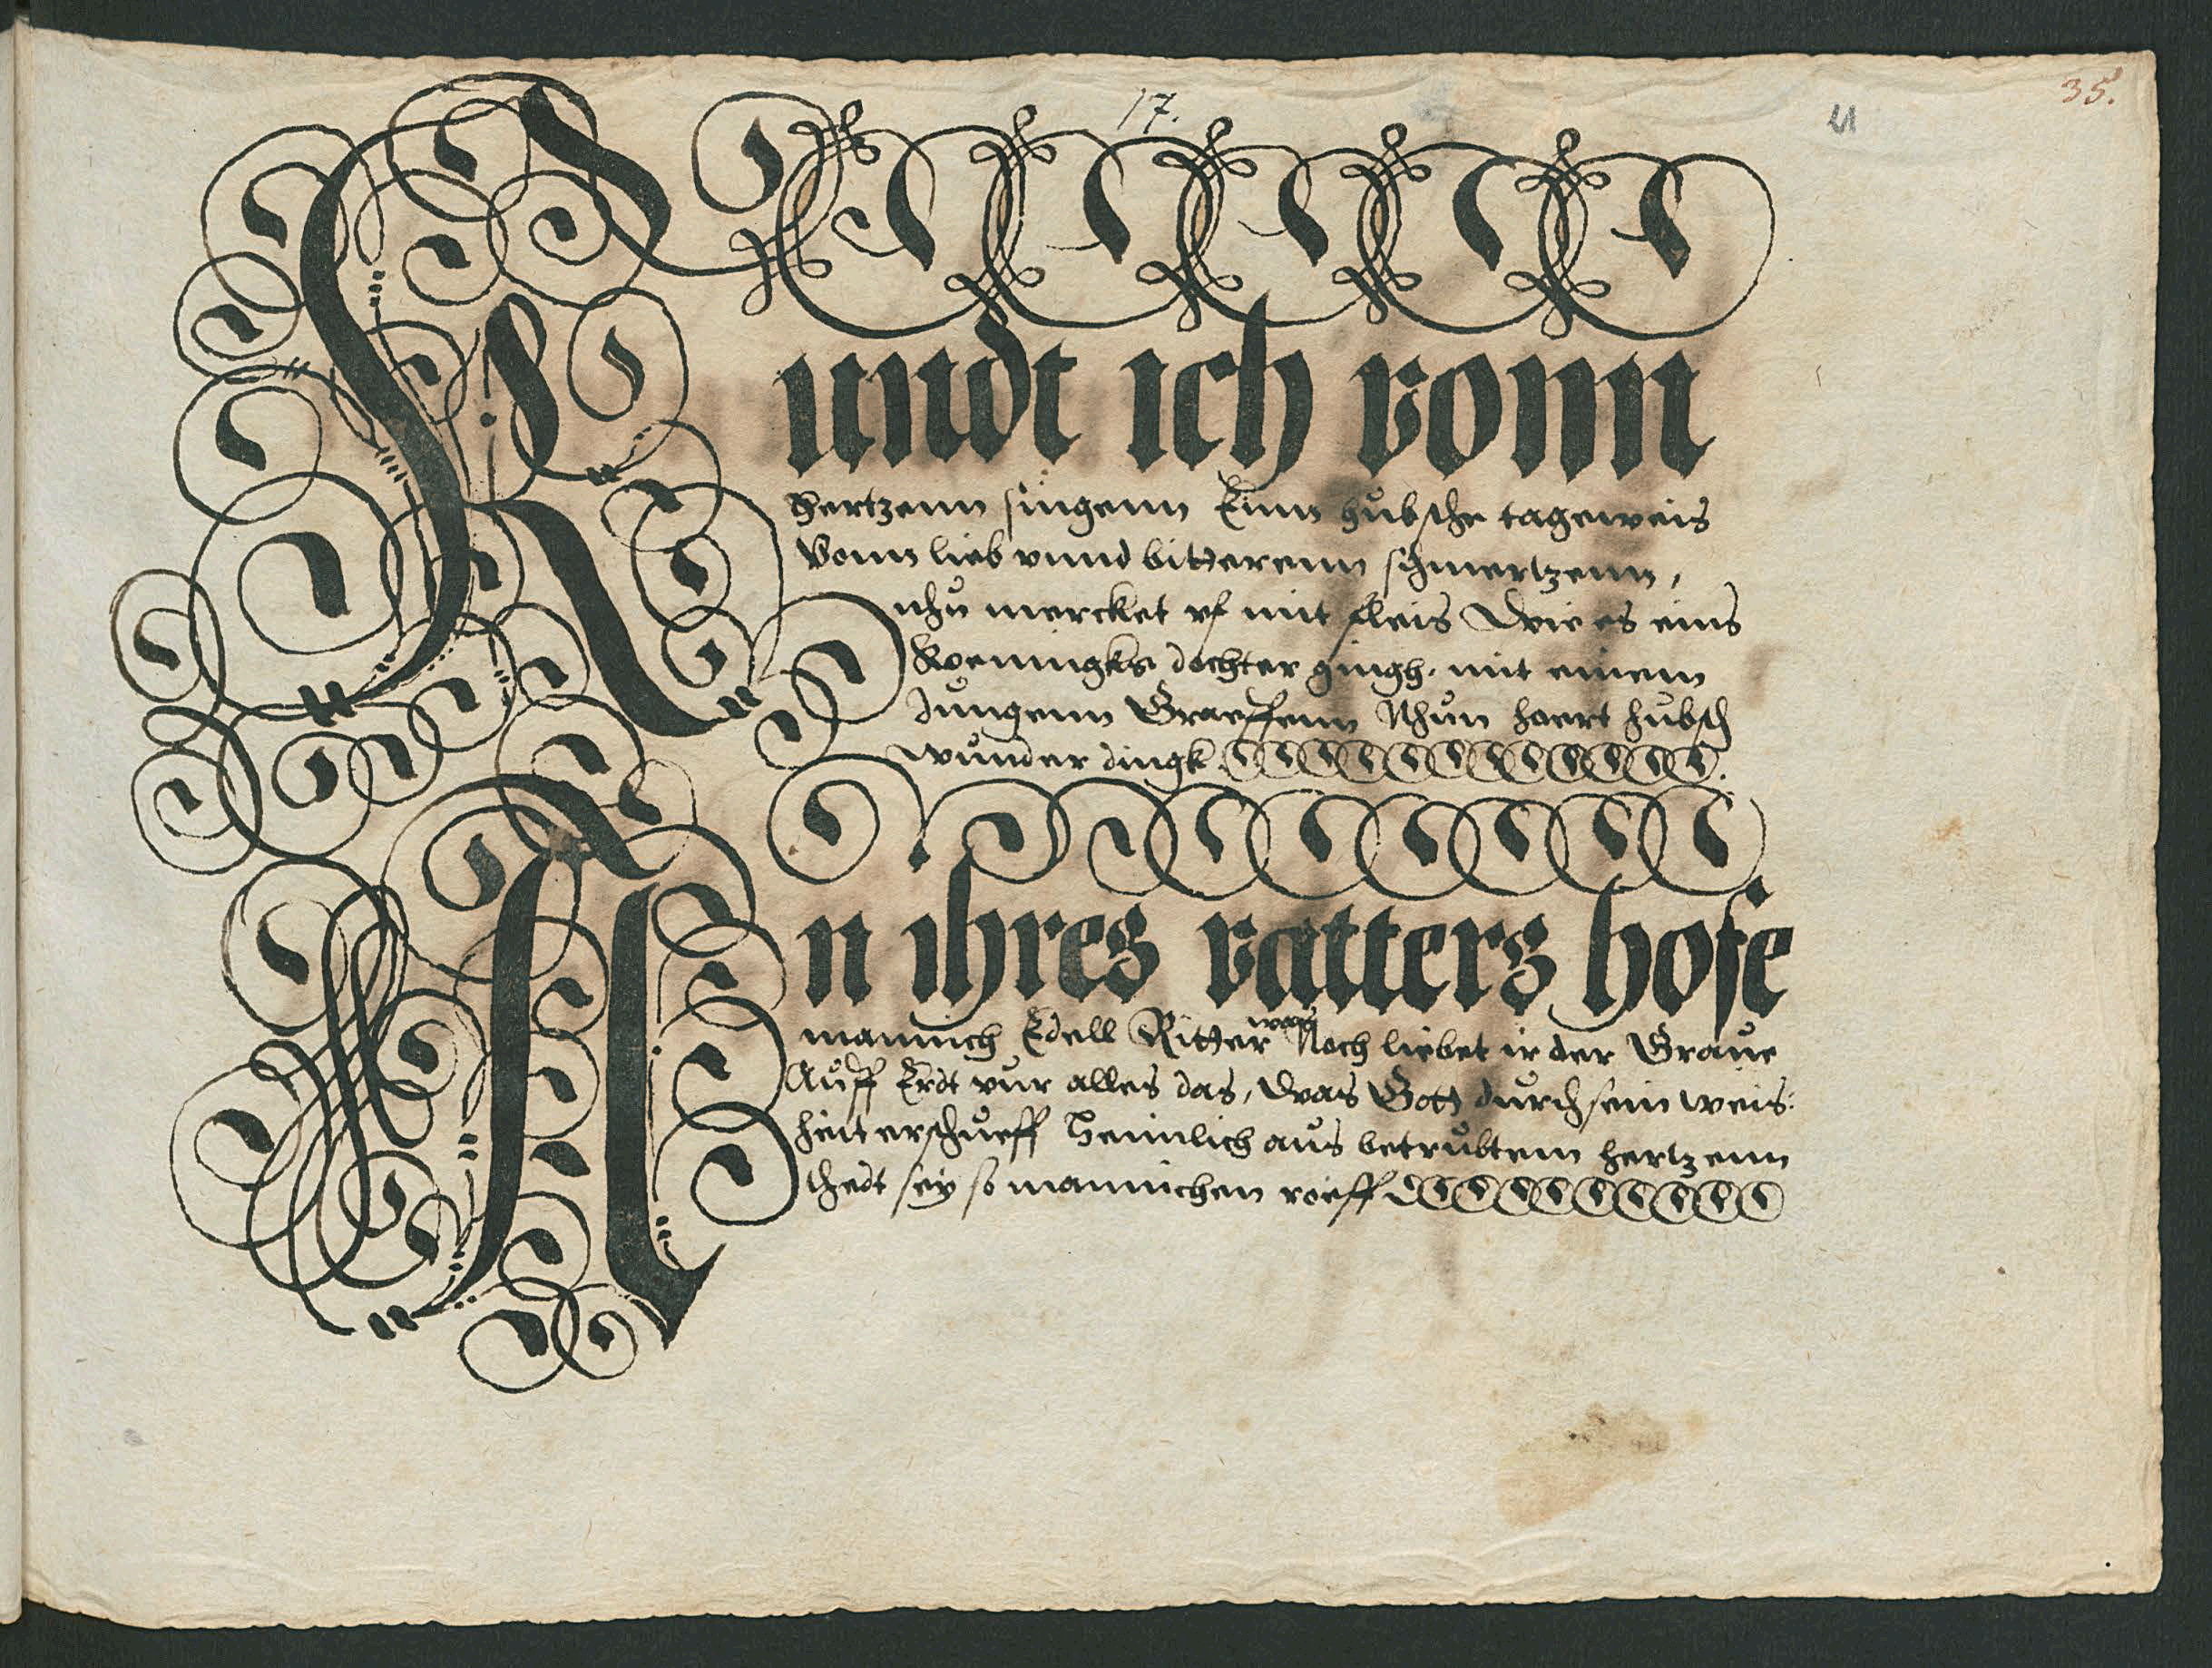 17.
35.
Kundt ich vonn
Hertzenn singenn Einn hubsche tageweis
Vonn lieb vnnd bitterenn schmertzenn,
nhu mercket vf mit fleis Wie es eins
Koeningks dochter gingh. mit einem
Jungenn Graeffenn Nhun hoert hubsch
wunder dingk.
An ihres vatters hofe
mannich Edell Ritter was Noch liebet ir der Graue
Auff Erdt vur alles das, Was Gott durch sein weis:
heit erschueff Heimlich aus betrubtem hertzenn
thedt sey so mannichen roeff